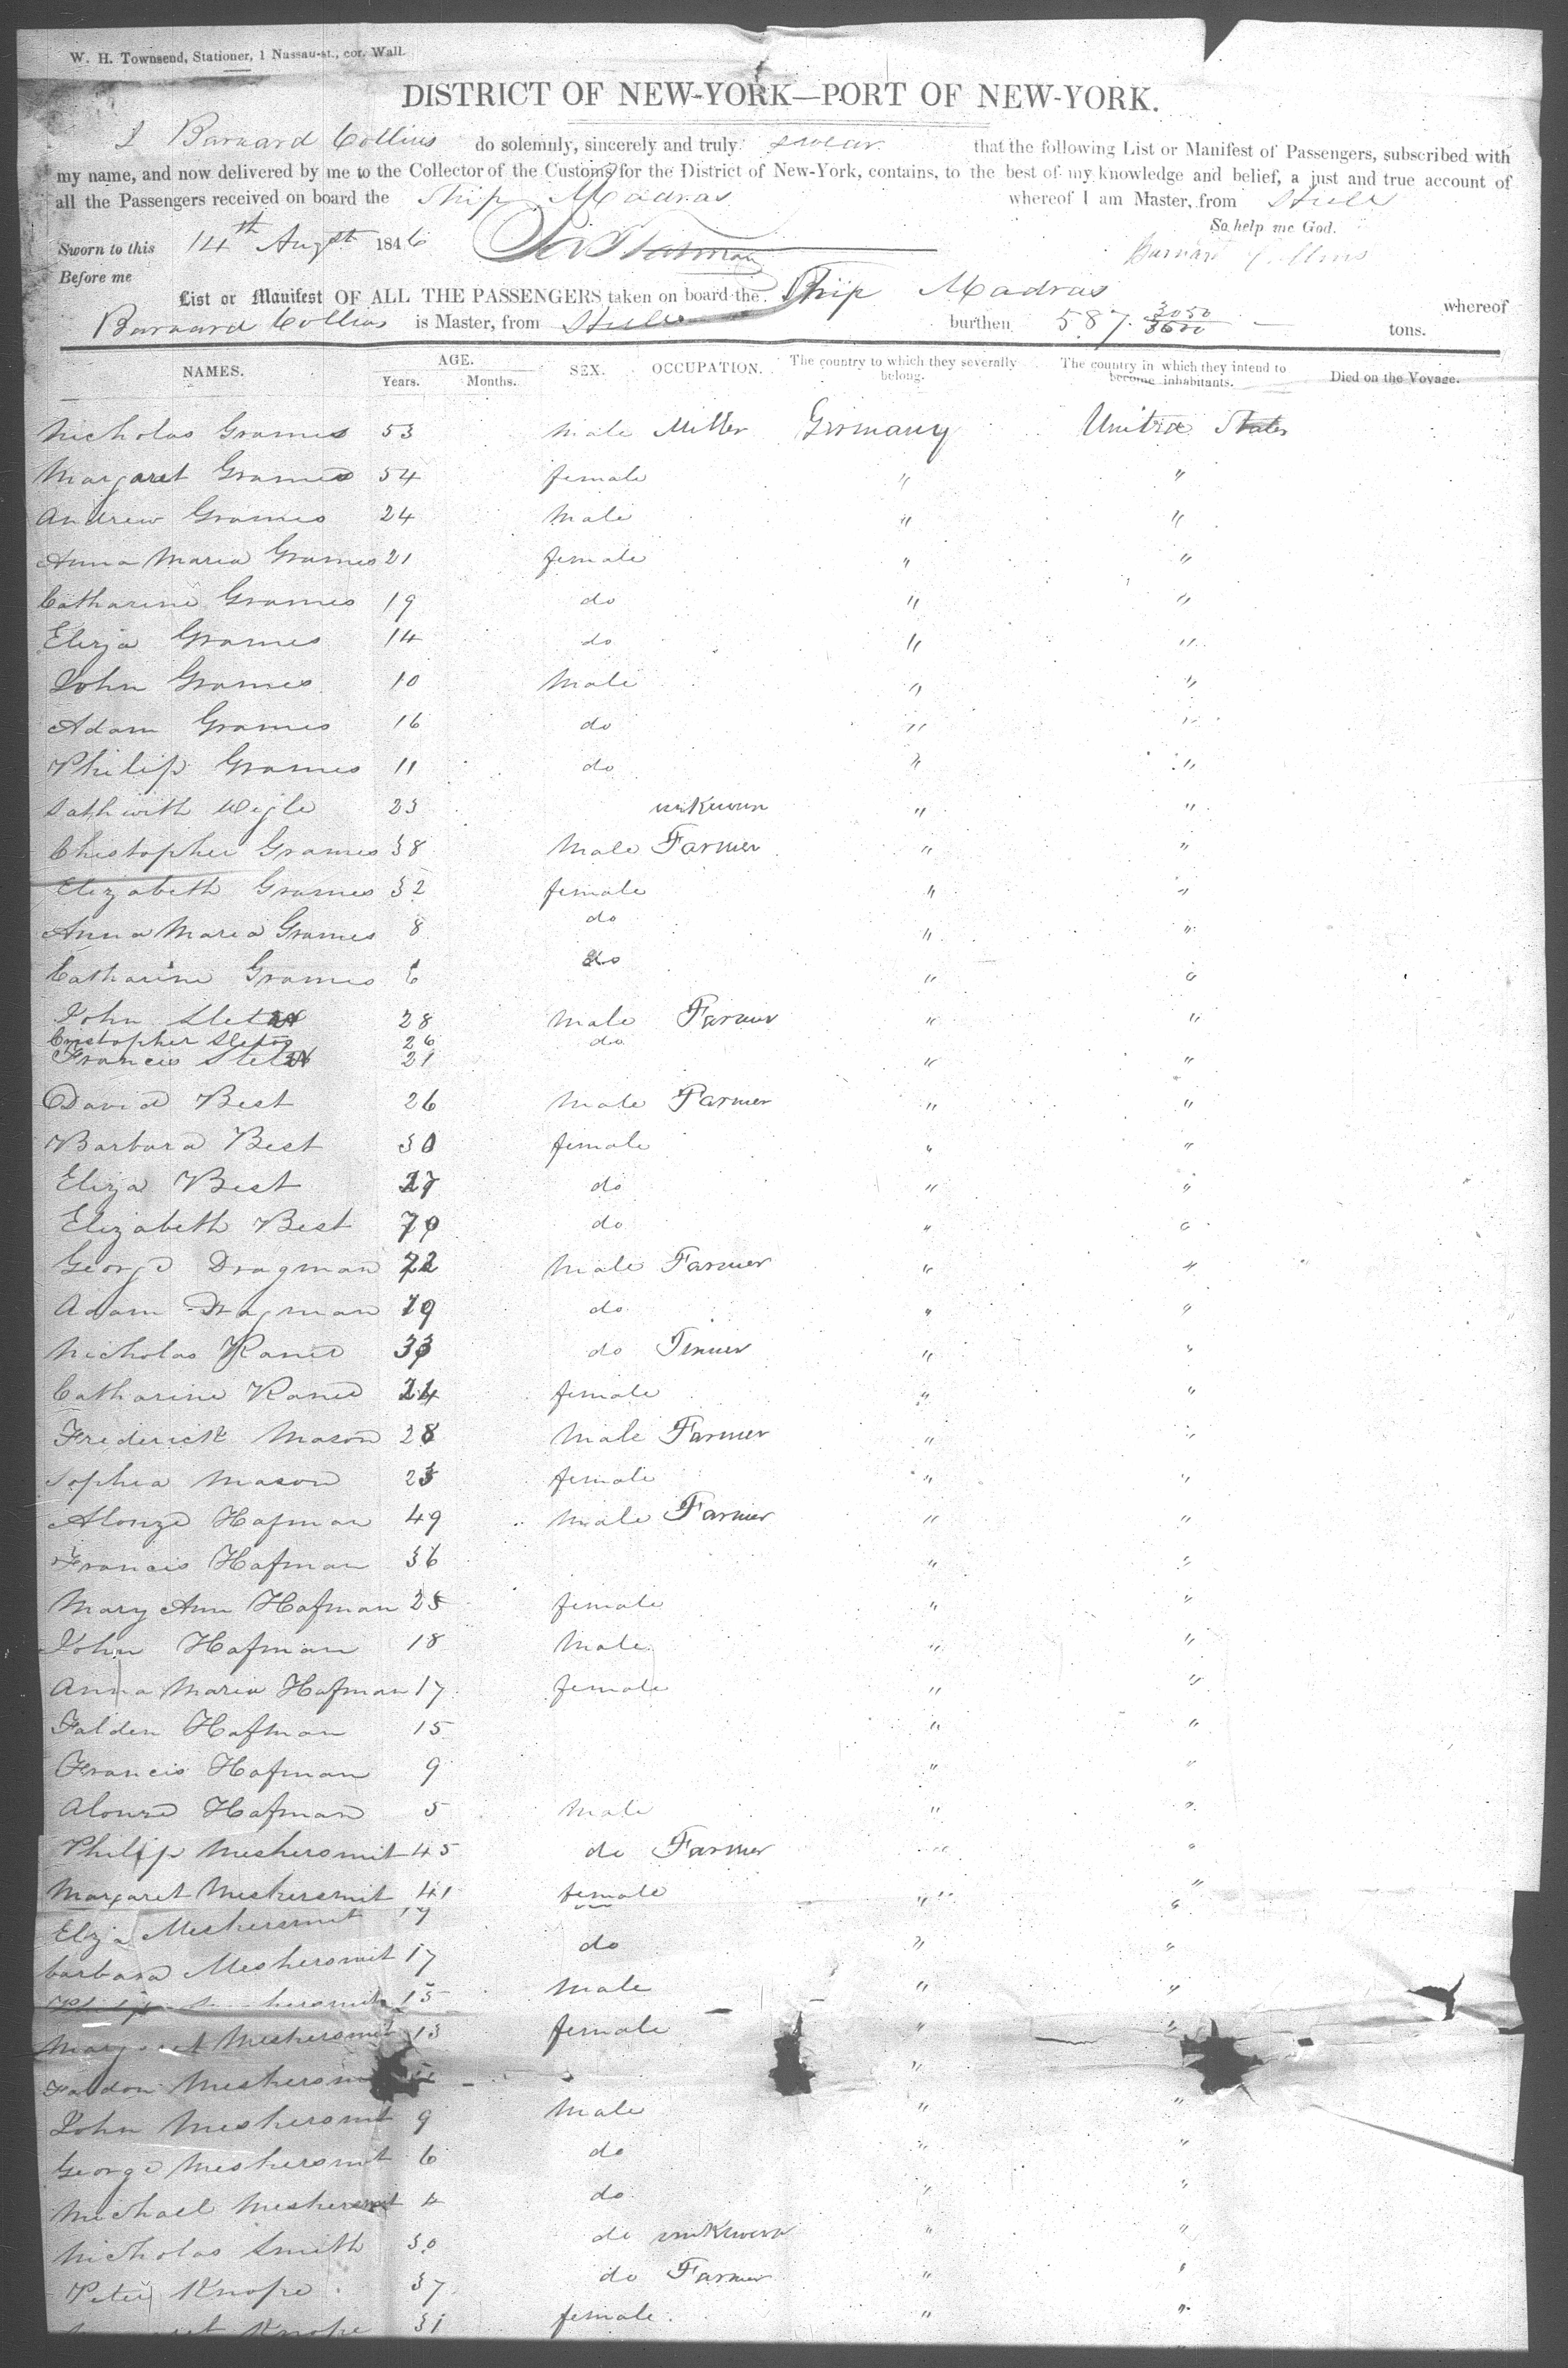 W. H. Townsend, Stationer, 1 Nassau-st., cor. Wall.
DISTRICT OF NEW-YORK—PORT OF NEW-YORK.
I Barnard Collins do solemnly, sincerely and truly swear that the following List or Manifest of Passengers, subscribed with
my name, and now delivered by me to the Collector of the Customs for the District of New-York, contains, to the best of my knowledge and belief, a just and true account of
all the Passengers received on board the Ship Madras whereof I am Master, from
So help me God.
Sworn to this 14th Augst 1846
Barnard Collins
Before me
List or Manifest OF ALL THE PASSENGERS taken on board the Ship Madras whereof
Barnard Collins is Master, from burthen 587 tons.
NAMES. AGE. SEX. OCCUPATION. The country to which they severally belong. The country in which they intend to become inhabitants. Died on the Voyage.
Years. Months.
Nicholas Grames 53 Male Miller Germany United States
Margaret Grames 54 female " "
Andrew Grames 24 Male " "
Anna Maria Grames 21 female " "
Catharine Grames 19 do " "
Eliza Grames 14 do " "
John Grames 10 Male " "
Adam Grames 16 do " "
Philip Grames 11 do " "
23 unknown " "
Chistopher Grames 38 Male Farmer " "
Elizabeth Grames 32 female " "
Anna Maria Grames 8 do " "
Catharine Grames 6 do " "
John 28 Male Farmer " "
26 do
Francis 21 " "
David Best 26 Male Farmer " "
Barbara Best 30 female " "
Eliza Best do " "
Elizabeth Best do " "
George Dragman Male Farmer " "
Adam Dragman 19 do " "
Nicholas Kane do " "
Catharine Kane 24 female " "
Frederick Mason 28 Male Farmer " "
Sophia Mason 23 female " "
Alonzo Hafman 49 Male Farmer " "
Francis Hafman 36 " "
Mary Ann Hafman 25 female " "
John Hafman 18 Male " "
Anna Maria Hafman 17 female " "
Falden Hafman 15 " "
Francis Hafman 9 " "
Alonzo Hafman 5 Male " "
Philip Meshersmit 45 do Farmer " "
Margaret Meshersmit 41 female " "
Eliza Meshersmit 19 "
barbara Meshersmit 17 do " "
15 Male " "
Margaret Meshersmit 13 female " "
Faldon "
John Meshersmit 9 Male " "
George Meshersmit 6 do " "
Michael Meshersmit 4 do " "
Nicholas Smith 30 do unknown " "
Peter Knope 37 do Farmer " "
Knope 31 female " "